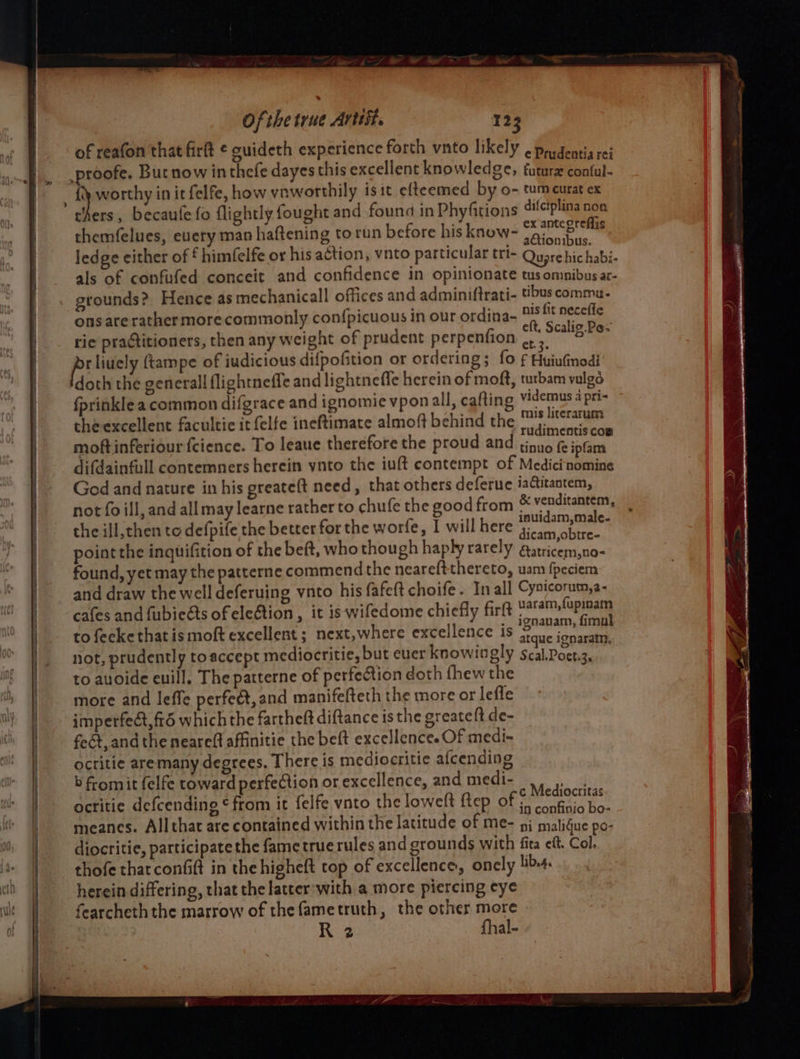 Of the true Artist. 123
of reason that first e guideth experience forth vnto likely
proofe. But now in these dayes this excellent knowledge,
worthy in it selfe, how vnworthily is it esteemed by o-
thers, because so slightly sought and found in Physitions
themselues, euery man hastening to run before his know-
ledge either of f himselfe or his action, vnto particular tri-
als of confused conceit and confidence in opinionate
grounds? Hence as mechanicall offices and administrati-
ons are rather more commonly conspicuous in our ordina-
rie practitioners, then any weight of prudent perpension
or liuely stampe of iudicious disposition or ordering; so
doth the generall slightnesse and lightnesse herein of most,
sprinkle a common disgrace and ignomie vpon all, casting
the excellent facultie it selfe inestimate almost behind the
most inferiour science. To leaue therefore the proud and
disdainfull contemners herein vnto the iust contempt of
God and nature in his greatest need, that others deserue
not so ill, and all may learne rather to chuse the good from
the ill, then to despise the better for the worse, I will here
point the inquisition of the best, who though haply rarely
found, yet may the patterne commend the nearest thereto,
and draw the well deseruing vnto his safest choise. In all
cases and subiects of election, it is wisedome chiefly first
to seeke that is most excellent; next, where excellence is
not, prudently to accept mediocritie, but euer knowingly
to auoide euill. The patterne of perfection doth shew the
more and lesse perfect, and manifesteth the more or lesse
imperfect, frõ which the farthest distance is the greatest de-
fect, and the nearest affinitie the best excellence. Of medi-
ocritie are many degrees. There is mediocritie ascending
b from it selfe toward perfection or excellence, and medi-
ocritie descending c from it selfe vnto the lowest step of
meanes. All that are contained within the latitude of me-
diocritie, participate the same true rules and grounds with
those that consist in the highest top of excellence, onely
herein differing, that the latter with a more piercing eye
searcheth the marrow of the same truth, the other more
R 2 shal-
e Prudentia rei
futuræ consul-
tum curat ex
disciplina non
ex antegressis
actionibus.
Quare hic habi-
tus omnibus ar-
tibus commu-
nis sit necesse
est, Scalig. Po-
et. 3.
f Huiusmodi
turbam vulgò
videmus à pri-
mis literarum
rudimentis con
tinuo se ipsam
Medici nomine
iactitantem,
& venditantem,
inuidam, male-
dicam, obtre-
ctatricem, no-
uam speciem
Cynicorum, a-
uaram, supinam
ignauam, simul
atque ignaram.
Scal. Poet. 3.
c Mediocritas
in confinio bo-
ni malique po-
sita est. Col.
lib. 4.